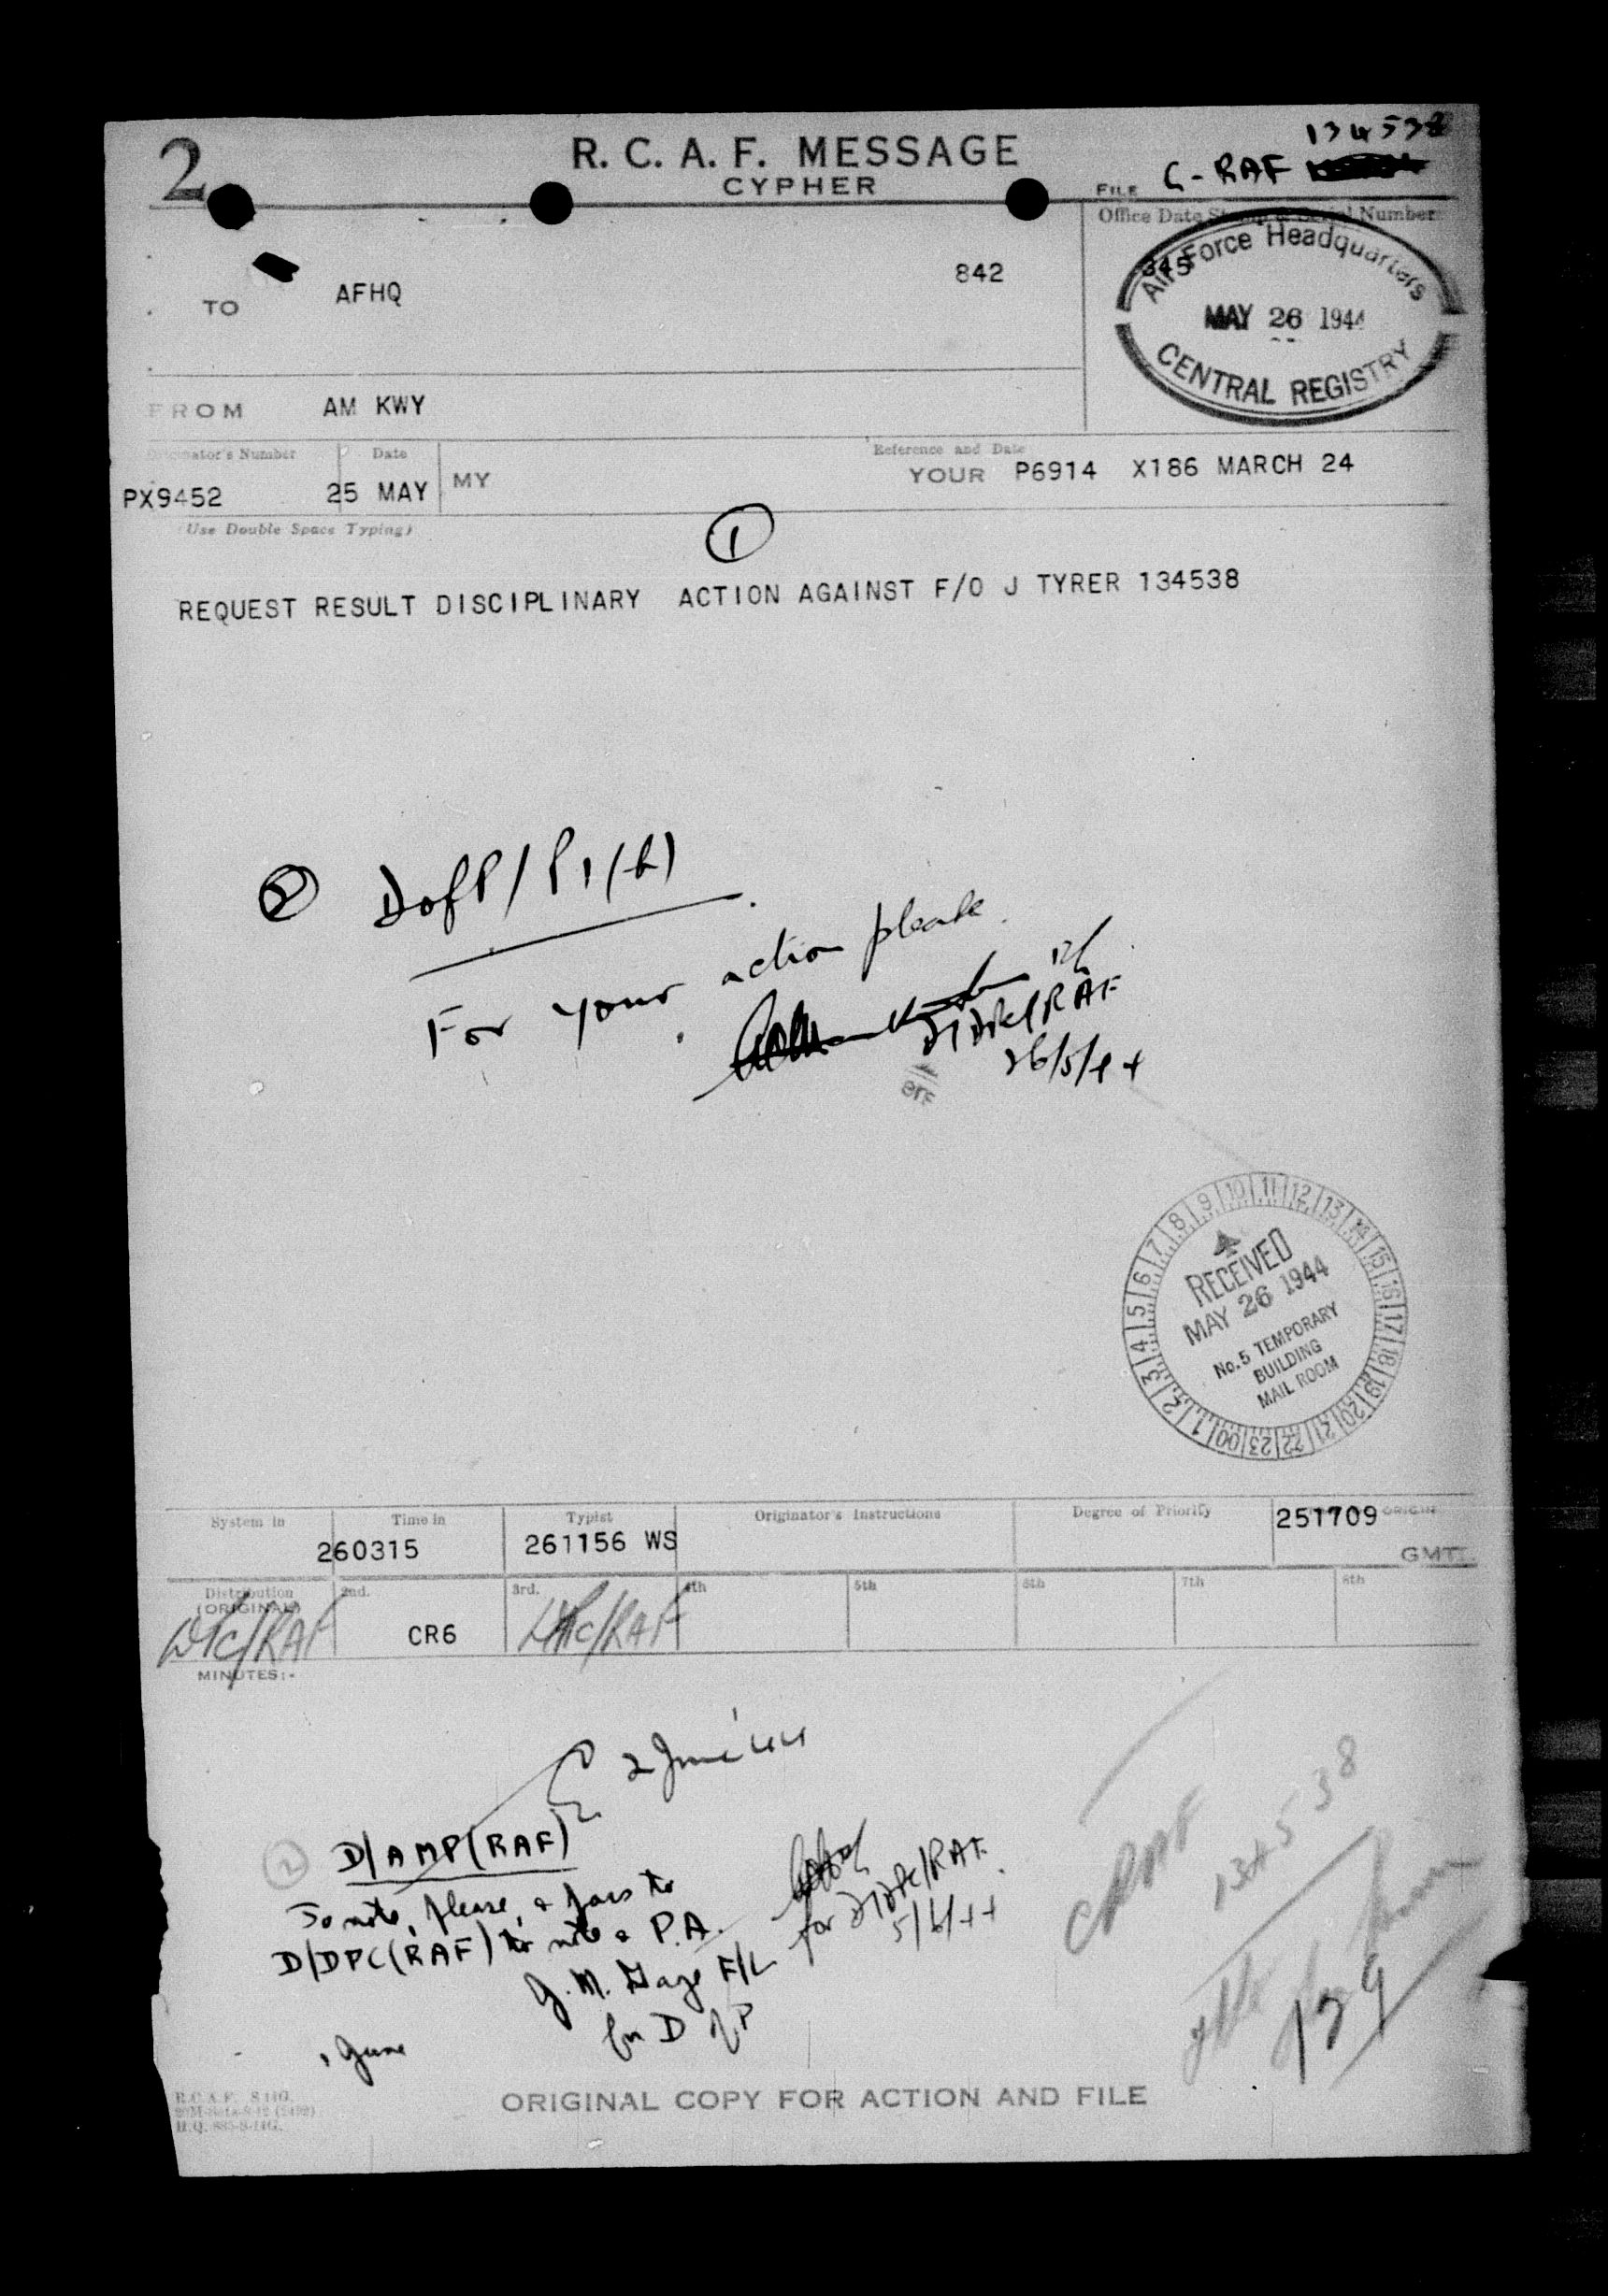 134538
2
R. C. A. F. MESSAGE
CYPHER
FILE C-RAF
Office Date Stamp & Serial Number
345
Air Force Headquarters
MAY 26 1944
CENTRAL REGISTRY
TO AFHQ 842
FROM AM KWY
Originator's Number Date Reference and Date
PX9452 25 MAY MY YOUR P6914 X186 MARCH 24
(Use Double Space Typing)
1
REQUEST RESULT DISCIPLINARY ACTION AGAINST F/O J TYRER 134538
2 DofP/P1
For your action please.
26/5/44
RECEIVED
MAY 26 1944
No. 5 TEMPORARY
BUILDING
MAIL ROOM
00 1 2 3 4 5 6 7 8 9 10 11 12 13 14 15 16 17 18 19 20 21 22 23
System in Time in Typist Originator's Instructions Degree of Priority ORIGIN
260315 261156 WS 251709
GMT
Distribution 2nd. 3rd. 4th 5th 6th 7th 8th
(ORIGINAL)
CR6
MINUTES:-
2 June '44
2 D/AMP(RAF)
To note, please, & pass to
D/DPC(RAF) to note & P.A.
for D/DPC/RAF
5/6/44
F/L
for D of P
June
CRAF
134538
ORIGINAL COPY FOR ACTION AND FILE
R.C.A.F.